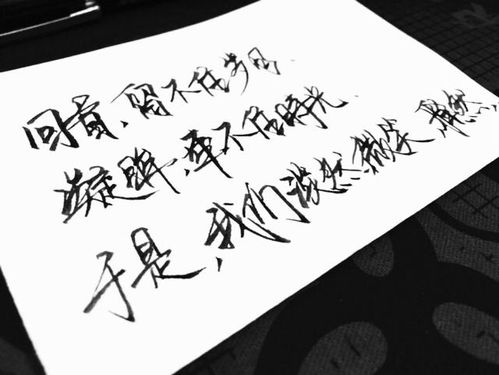 回首,留不住岁月.
凝眸,牵不住時光.
于是,我们淡然微笑,